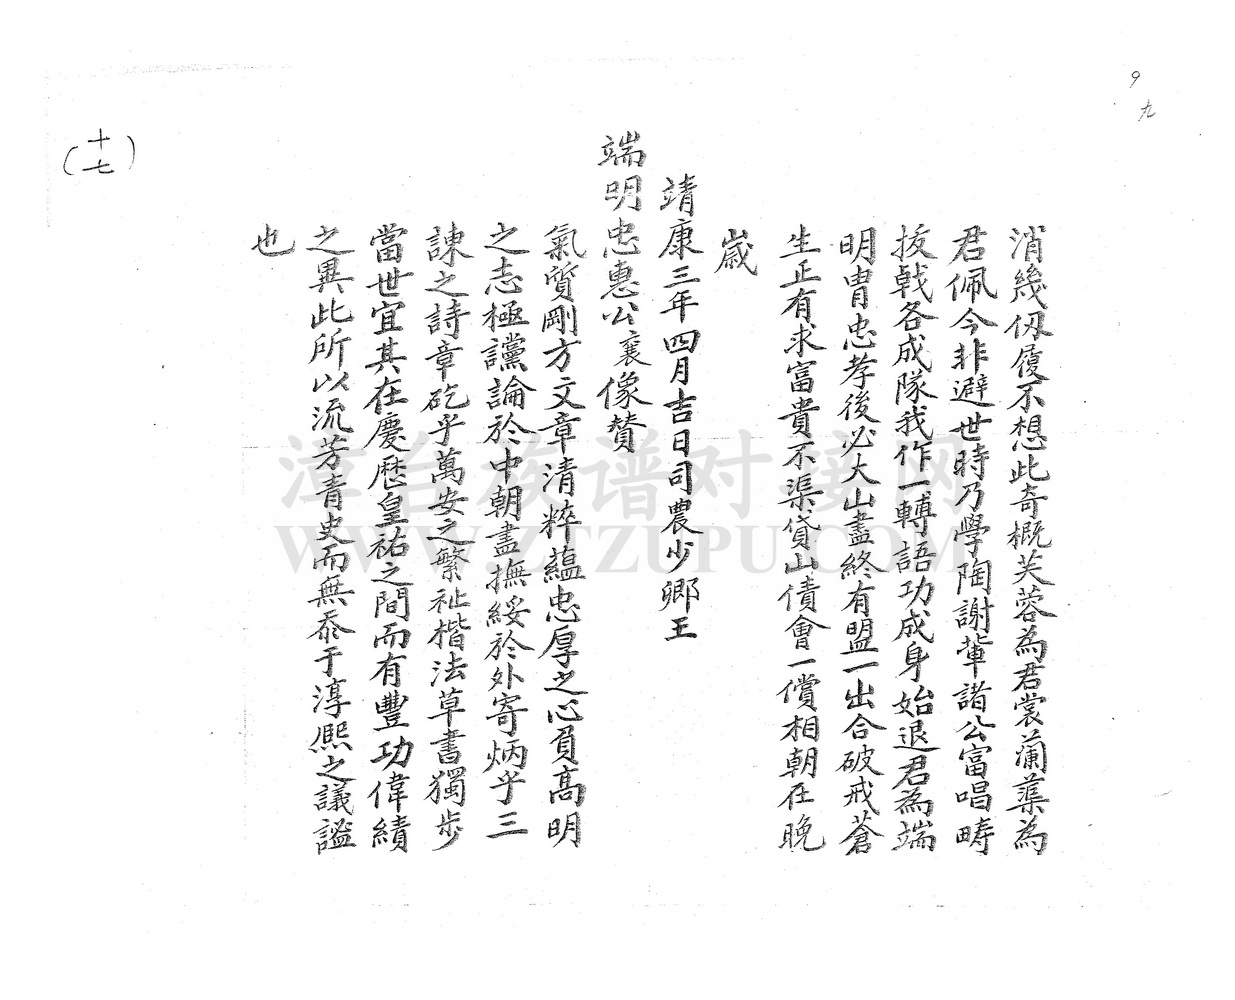 9
九
消幾仭履不想此奇概芙蓉為君裳蘭蕖為
君佩今非避世時乃學陶謝輩諸公富唱疇
拔戟各成隊我作一轉語功成身始退君為端
明胄忠孝後必大山盡終有盟一出合破戒蒼
生正有求富貴不渠貸山債會一償相朝在晚
歲
靖康三年四月吉日司農少卿王
端明忠惠公襄像贊
氣質剛方文章清粹蘊忠厚之心負高明
之志極讜論於中朝盡撫綏於外寄炳乎三
諫之詩章矻乎萬安之繁祉楷法草書獨步
當世宜其在慶歷皇祐之間而有豐功偉績
之異此所以流芳青史而無忝于淳熙之議謚
也
(十七)
漳台族谱对接网
WWW.ZTZUPU.COM